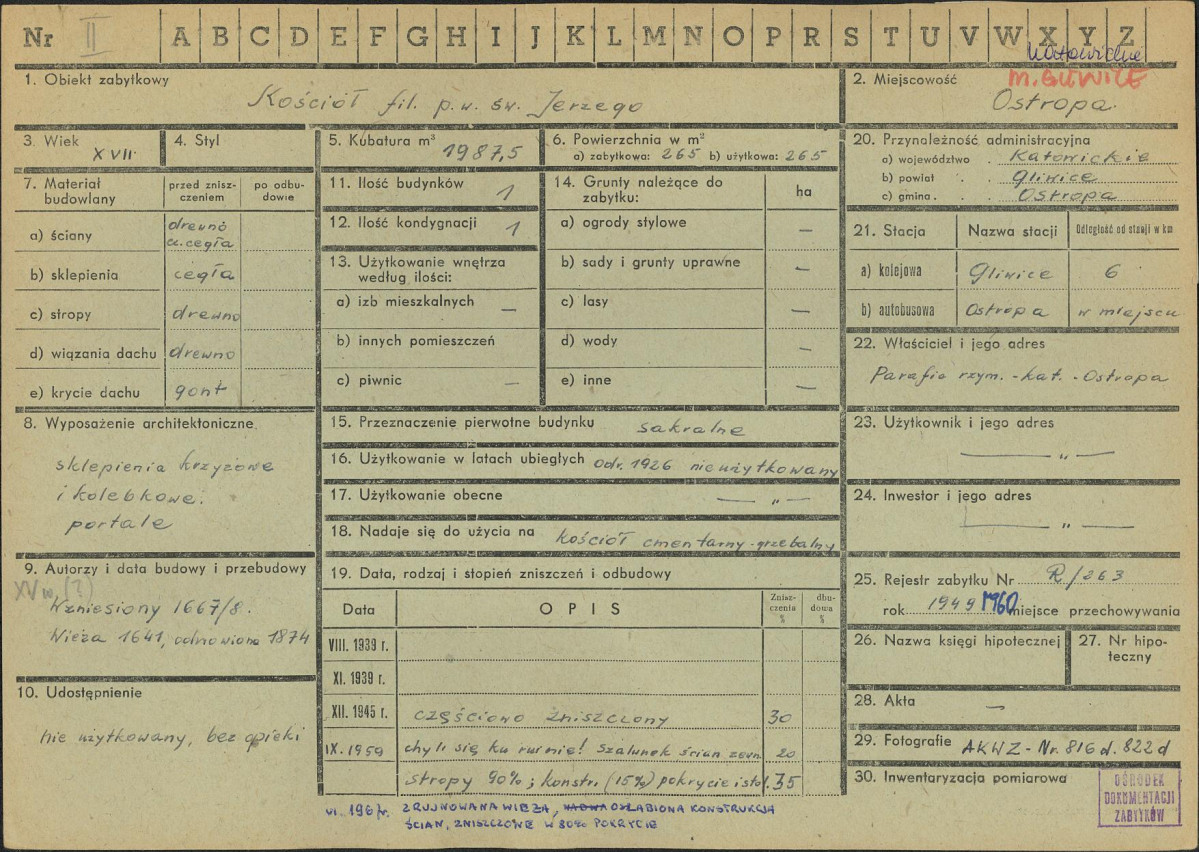 Nr II A B C D E F G H I J K L M N O P R S T U V W X Y Z
Katowickie
1. Obiekt zabytkowy
Kościół fil. p.w. św. Jerzego
2. Miejscowość
M. GLIWICE
Ostropa.
3. Wiek
XVII.
4. Styl
5. Kubatura m³
1987,5
6. Powierzchnia w m²
a) zabytkowa: 265 b) użytkowa: 265
20. Przynależność administracyjna
a) województwo . Katowickie
b) powiat . . Gliwice
c) gmina . . Ostropa
7. Materiał budowlany
przed znisz-
czeniem
po odbu-
dowie
a) ściany drewno
a. cegła
b) sklepienia cegła
c) stropy drewno
d) wiązania dachu drewno
e) krycie dachu gont
11. Ilość budynków 1
12. Ilość kondygnacji 1
13. Użytkowanie wnętrza
według ilości:
a) izb mieszkalnych —
b) innych pomieszczeń
c) piwnic —
14. Grunty należące do
zabytku:
ha
a) ogrody stylowe —
b) sady i grunty uprawne —
c) lasy —
d) wody —
e) inne —
21. Stacja Nazwa stacji Odległość od stacji w km
a) kolejowa Gliwice 6
b) autobusowa Ostropa w miejscu
22. Właściciel i jego adres
Parafia rzym.-kat. - Ostropa
8. Wyposażenie architektoniczne
sklepienia krzyżowe
i kolebkowe.
portale
15. Przeznaczenie pierwotne budynku sakralne
16. Użytkowanie w latach ubiegłych odr. 1926 nieużytkowany
17. Użytkowanie obecne — „ —
18. Nadaje się do użycia na kościół cmentarny-grzebalny
23. Użytkownik i jego adres
— „ —
24. Inwestor i jego adres
— „ —
9. Autorzy i data budowy i przebudowy
XV w. (?)
Wzniesiony 1667/8.
Wieża 1641, odnowiona 1874
10. Udostępnienie
nie użytkowany, bez opieki
19. Data, rodzaj i stopień zniszczeń i odbudowy
Data OPIS Znisz-
czenia
% dbu-
dowa
%
VIII. 1939 r.
XI. 1939 r.
XII. 1945 r. częściowo zniszczony 30
IX. 1959 chyli się ku ruinie! Szalunek ścian zewn. 20
stropy 90%; konstr. (15%) pokrycie isto 1.35
VI. 1961r. ZRUJNOWANA WIEŻA, OSŁABIONA KONSTRUKCJA
ŚCIAN, ZNISZCZONE W 80% POKRYCIE
25. Rejestr zabytku Nr R/263
rok 1949 1960 miejsce przechowywania
26. Nazwa księgi hipotecznej
27. Nr hipo-
teczny
28. Akta —
29. Fotografie AKWZ - Nr. 816 d. 822 d
30. Inwentaryzacja pomiarowa
OŚRODEK
DOKUMENTACJI
ZABYTKÓW